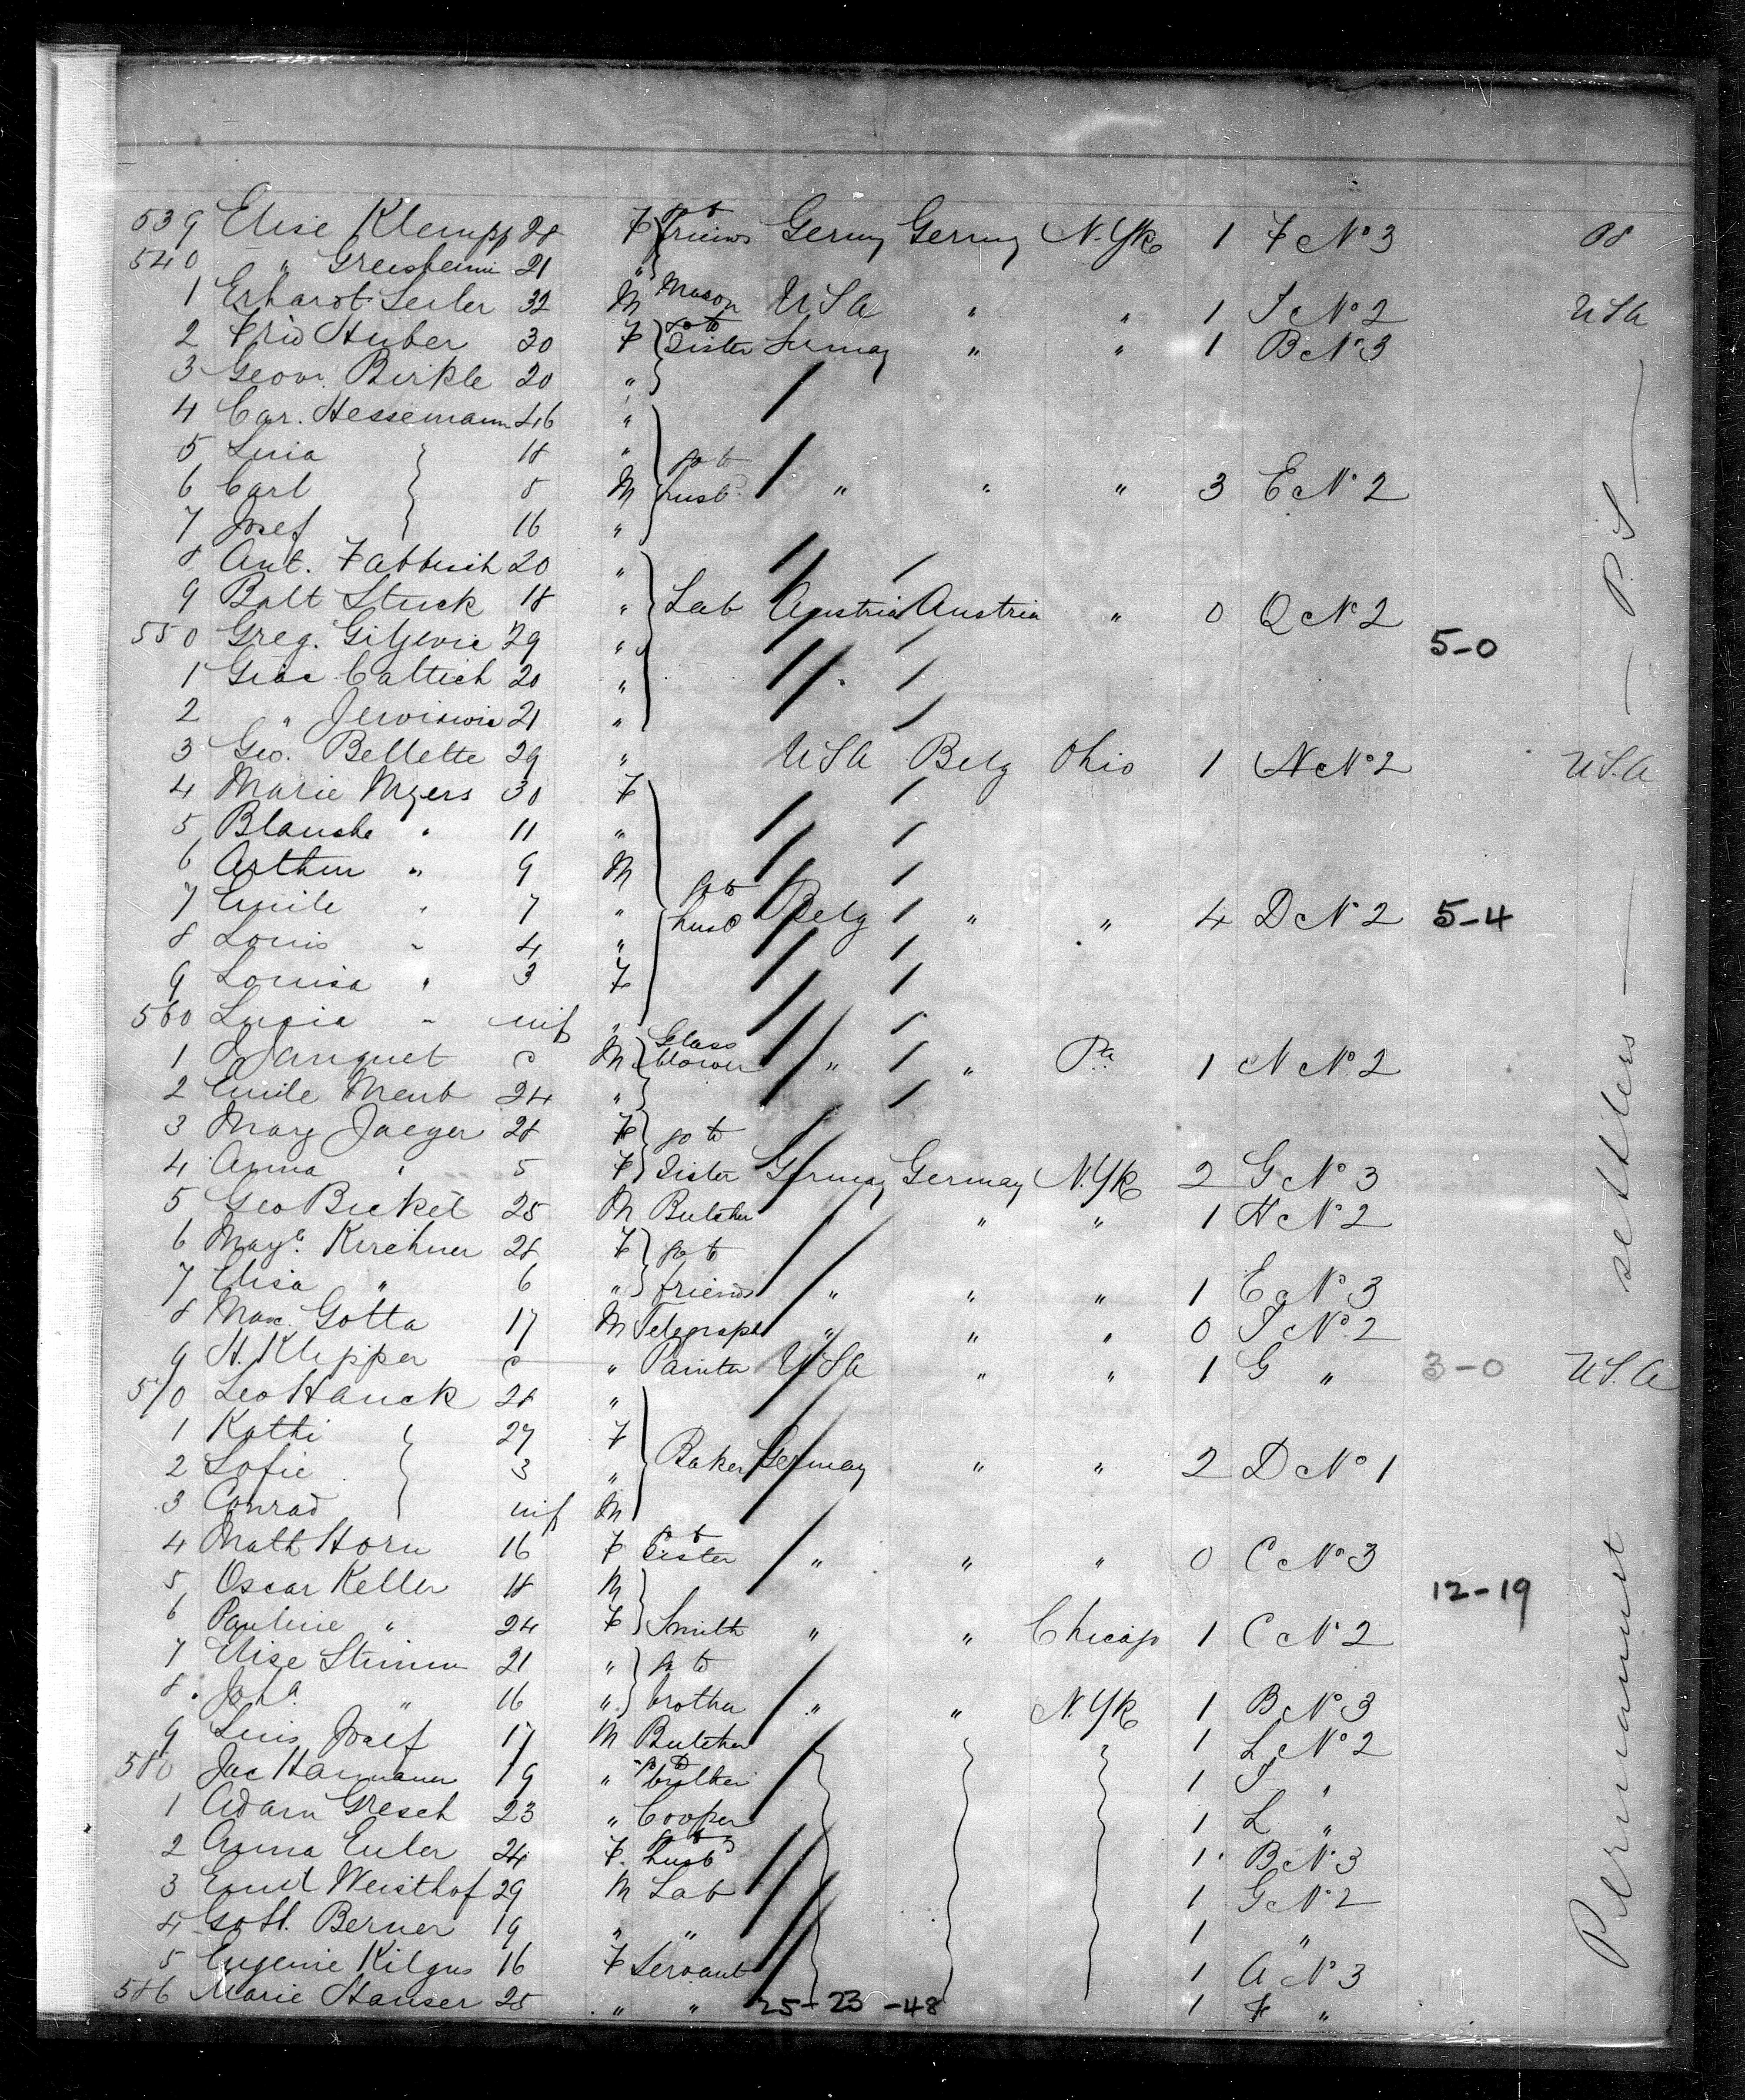 539 Elise Klempp 28 F go to friends Germy Germy N.Yk 1 F No 3
540 " Greisheim 21 "
1 Erhardt Seiler 32 M Mason USA " " 1 J No 2 USA
2 Frid Huber 30 F go to Sister Germay " " 1 B No 3
3 Geor. Birkle 20 "
4 Car. Hessemann 46 "
5 Lina 18 "
6 Carl 8 M go to husb " " " 3 E No 2
7 Josef 16 "
8 Ant. Fabbrich 20 "
9 Balt Stuck 18 " Lab Austria Austria " 0 Q No 2
550 Greg. Giljevic 29 " 5-0
1 Giac Caltich 20 "
2 " 21 "
3 Geo. Bellette 29 " USA Belg Ohio 1 N No 2 USA
4 Marie Myers 30 F
5 Blanche " 11 "
6 Arthur " 9 M
7 Emile " 7 " go to husb Belg " " 4 D No 2 5-4
8 Louis " 4 "
9 Louisa " 3 F
560 Lucia " inf "
1 M Glass blower " " Pa 1 N No 2
2 Emile 24 "
3 Mary Jaeger 28 F go to
4 Anna " 5 F Sister Germay Germay N.Yk 2 G No 3
5 Geo Bickel 25 M Butcher " " 1 H No 2
6 Magt. Kirchner 28 F go to
7 Elisa " 6 " friends " " " 1 E No 3
8 Max Gotta 17 M Telegraph " " " 0 J No 2
9 H. Klipper " Painter USA " " 1 G " 3-0 USA
570 Leo Hauck 28 "
1 Kathi 27 F
2 Sofie 3 " Baker Germay " " 2 D No 1
3 Conrad inf M
4 Math Horn 16 F go to Sister " " " 0 C No 3
5 Oscar Keller 18 M 12-19
6 Pauline " 24 F Smith " " Chicago 1 C No 2
7 Elise Stimm 21 " go to
8 Joha " 16 " brother " " N.Yk 1 B No 3
9 Luis Josef 17 M Butcher 1 L No 2
580 Jac 19 " go to brother 1 J "
1 Adam Gresch 23 " Cooper 1 L "
2 Anna Euler 24 F. go to husb 1 B No 3
3 Ernst Weisthof 29 M Lab 1 G No 2
4 Gottl. Berner 19 " " 1 "
5 Eugenie Kilgus 16 F Servant 1 A No 3
586 Marie Hauser 25 " " 25-23-48 1 F "
Permanent settlers — P.S —